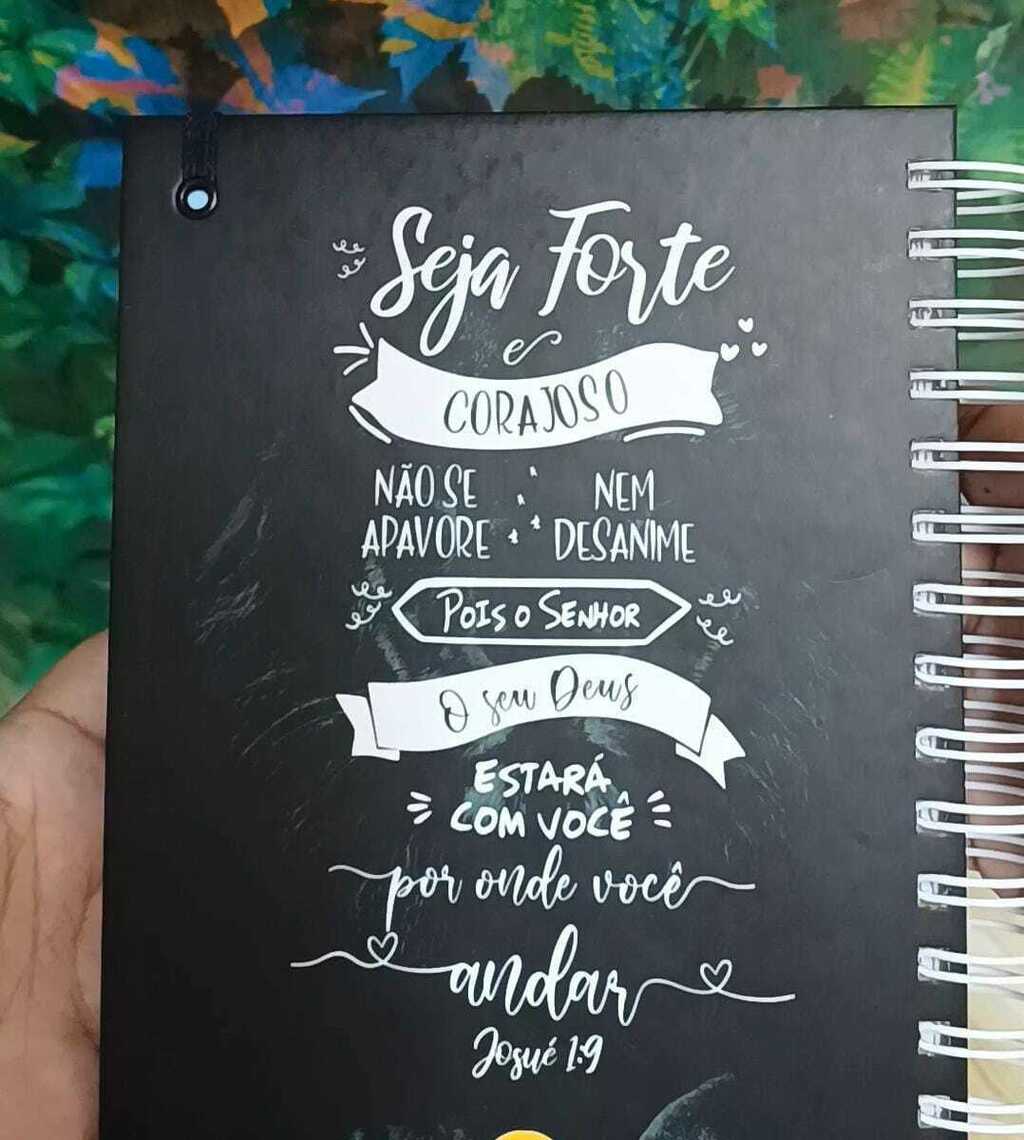 Seja Forte
e
CORAJOSO
NÃO SE NEM
APAVORE DESANIME
POIS O SENHOR
O seu Deus
ESTARÁ
COM VOCÊ
por onde você
andar
Josué 1:9